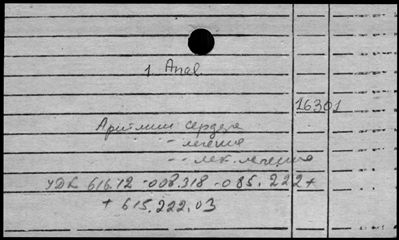 1. Anal.
16301
Аритмии сердца
- лечение
-- лек. лечение
УДК 616.12 -008.318 -085. 222 +
+ 615.222.03